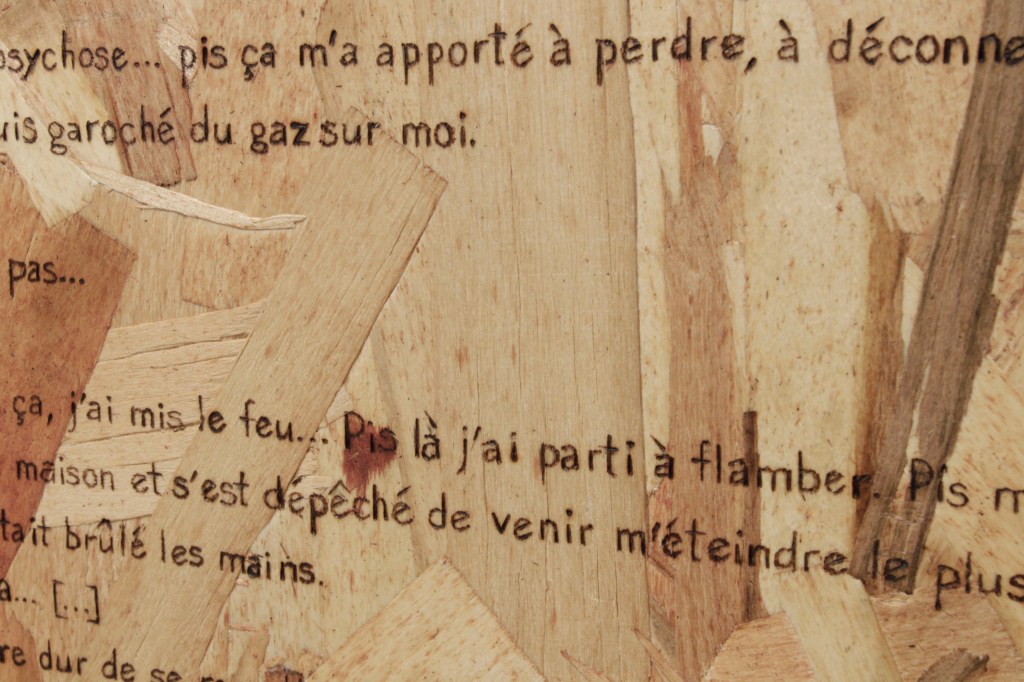 psychose... pis ça m'a apporté à perdre, à déconne
uis garoché du gaz sur moi.
pas...
ça, j'ai mis le feu... Pis là j'ai parti à flamber. Pis m
maison et s'est dépêché de venir m'éteindre le plus
tait brûlé les mains.
a... [...]
re dur de se